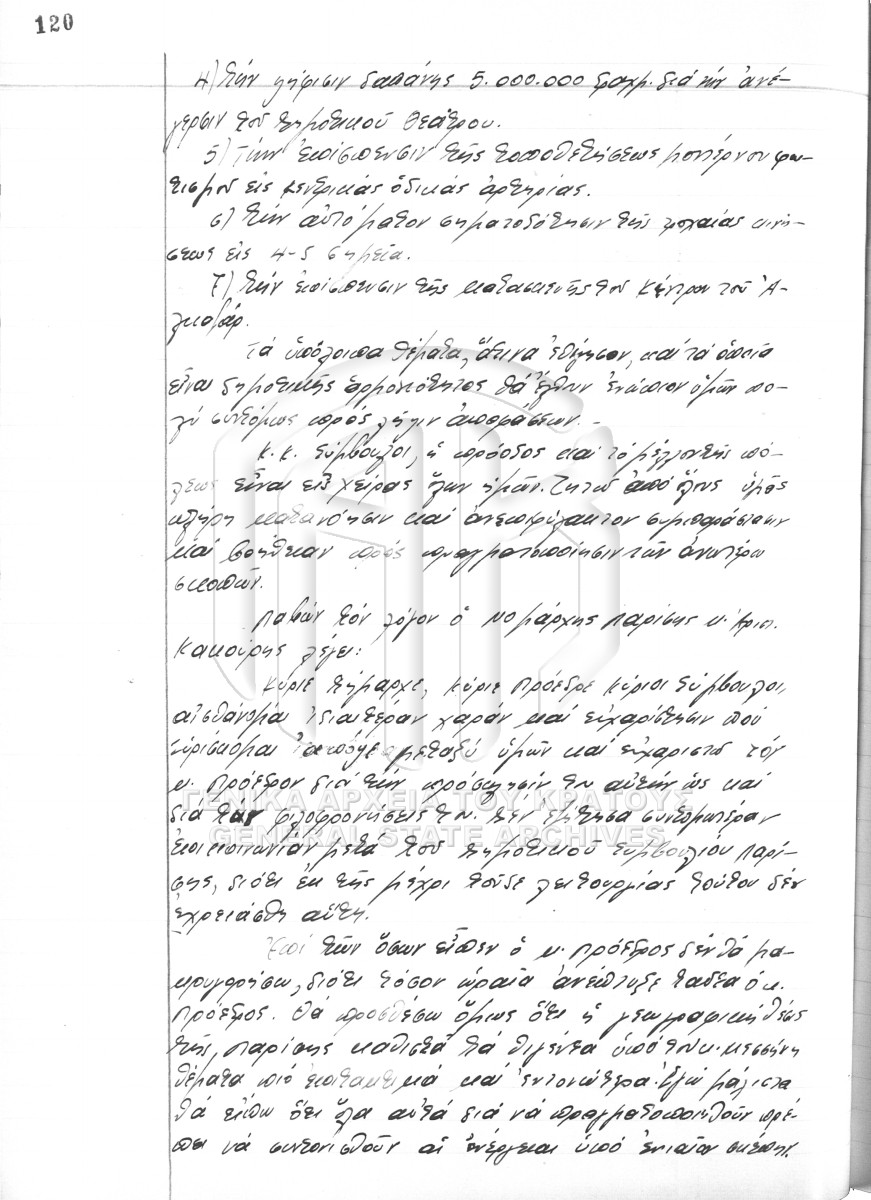 120
4) Τήν ψήφισιν δαπάνης 5.000.000 δραχμ. διά τήν ἀνέ-
γερσιν τοῦ Δημοτικοῦ Θεάτρου.
5) Τήν ἐπίσπευσιν τῆς τοποθετήσεως μοντέρνου φω-
τισμοῦ εἰς κεντρικάς ὁδικάς ἀρτηρίας.
6) Τήν αὐτόματον σηματοδότησιν τῆς τροχαίας κινή-
σεως εἰς 4-5 σημεῖα.
7) Τήν ἐπίσπευσιν τῆς κατασκευῆς τοῦ Κέντρου τοῦ Ἀ-
λκαζάρ.
Τά ὑπόλοιπα θέματα, ἅτινα ἐθίγησαν, καί τά ὁποῖα
εἶναι δημοτικῆς ἁρμοδιότητος θά ἔλθουν ἐνώπιον ὑμῶν πο-
λύ συντόμως πρός λῆψιν ἀποφάσεων.-
Κ.κ. Σύμβουλοι, ἡ πρόοδος καί τό μέλλον τῆς πό-
λεως εἶναι εἰς χεῖρας ὅλων ἡμῶν. Ζητῶ ἀπό ὅλους ὑμᾶς
πλήρη κατανόησιν καί ἀνεπιφύλακτον συμπαράστασιν
καί βοήθειαν πρός πραγματοποίησιν τῶν ἀνωτέρω
σκοπῶν.
Λαβών τόν λόγον ὁ Νομάρχης Λαρίσης κ. Ἀριστ.
Κακούρης λέγει:
Κύριε Δήμαρχε, Κύριε Πρόεδρε Κύριοι Σύμβουλοι,
αἰσθάνομαι ἰδιαιτέραν χαράν καί εὐχαρίστησιν πού
εὑρίσκομαι ἀπόψε μεταξύ ὑμῶν καί εὐχαριστῶ τόν
κ. Πρόεδρον διά τήν πρόσκλησίν του αὐτήν ὡς καί
διά τάς φιλοφρονήσεις του. Δέν ἐζήτησα συντομωτέραν
ἐπικοινωνίαν μετά τοῦ Δημοτικοῦ Συμβουλίου Λαρί-
σης, διότι ἐκ τῆς μέχρι τοῦδε λειτουργίας τούτου δέν
ἐχρειάσθη αὕτη.
Ἐπί τῶν ὅσων εἶπεν ὁ κ. Πρόεδρος δέν θά μα-
κρυγορήσω, διότι τόσον ὡραῖα ἀνέπτυξε ταῦτα ὁ κ.
Πρόεδρος. Θά προσθέσω ὅμως ὅτι ἡ γεωγραφική θέσις
τῆς Λαρίσης καθιστᾶ τά θιγέντα ὑπό τοῦ κ. Μεσσήνη
θέματα πιό ἐπιτακτικά καί ἐντονώτερα. Ἐγώ μάλιστα
θά εἴπω ὅτι ὅλα αὐτά διά νά πραγματοποιηθοῦν πρέ-
πει νά συντονισθοῦν αἱ ἐνέργειαι ὑπό ἑνιαίαν σκέπην.
ΓΕΝΙΚΑ ΑΡΧΕΙΑ ΤΟΥ ΚΡΑΤΟΥΣ
GENERAL STATE ARCHIVES